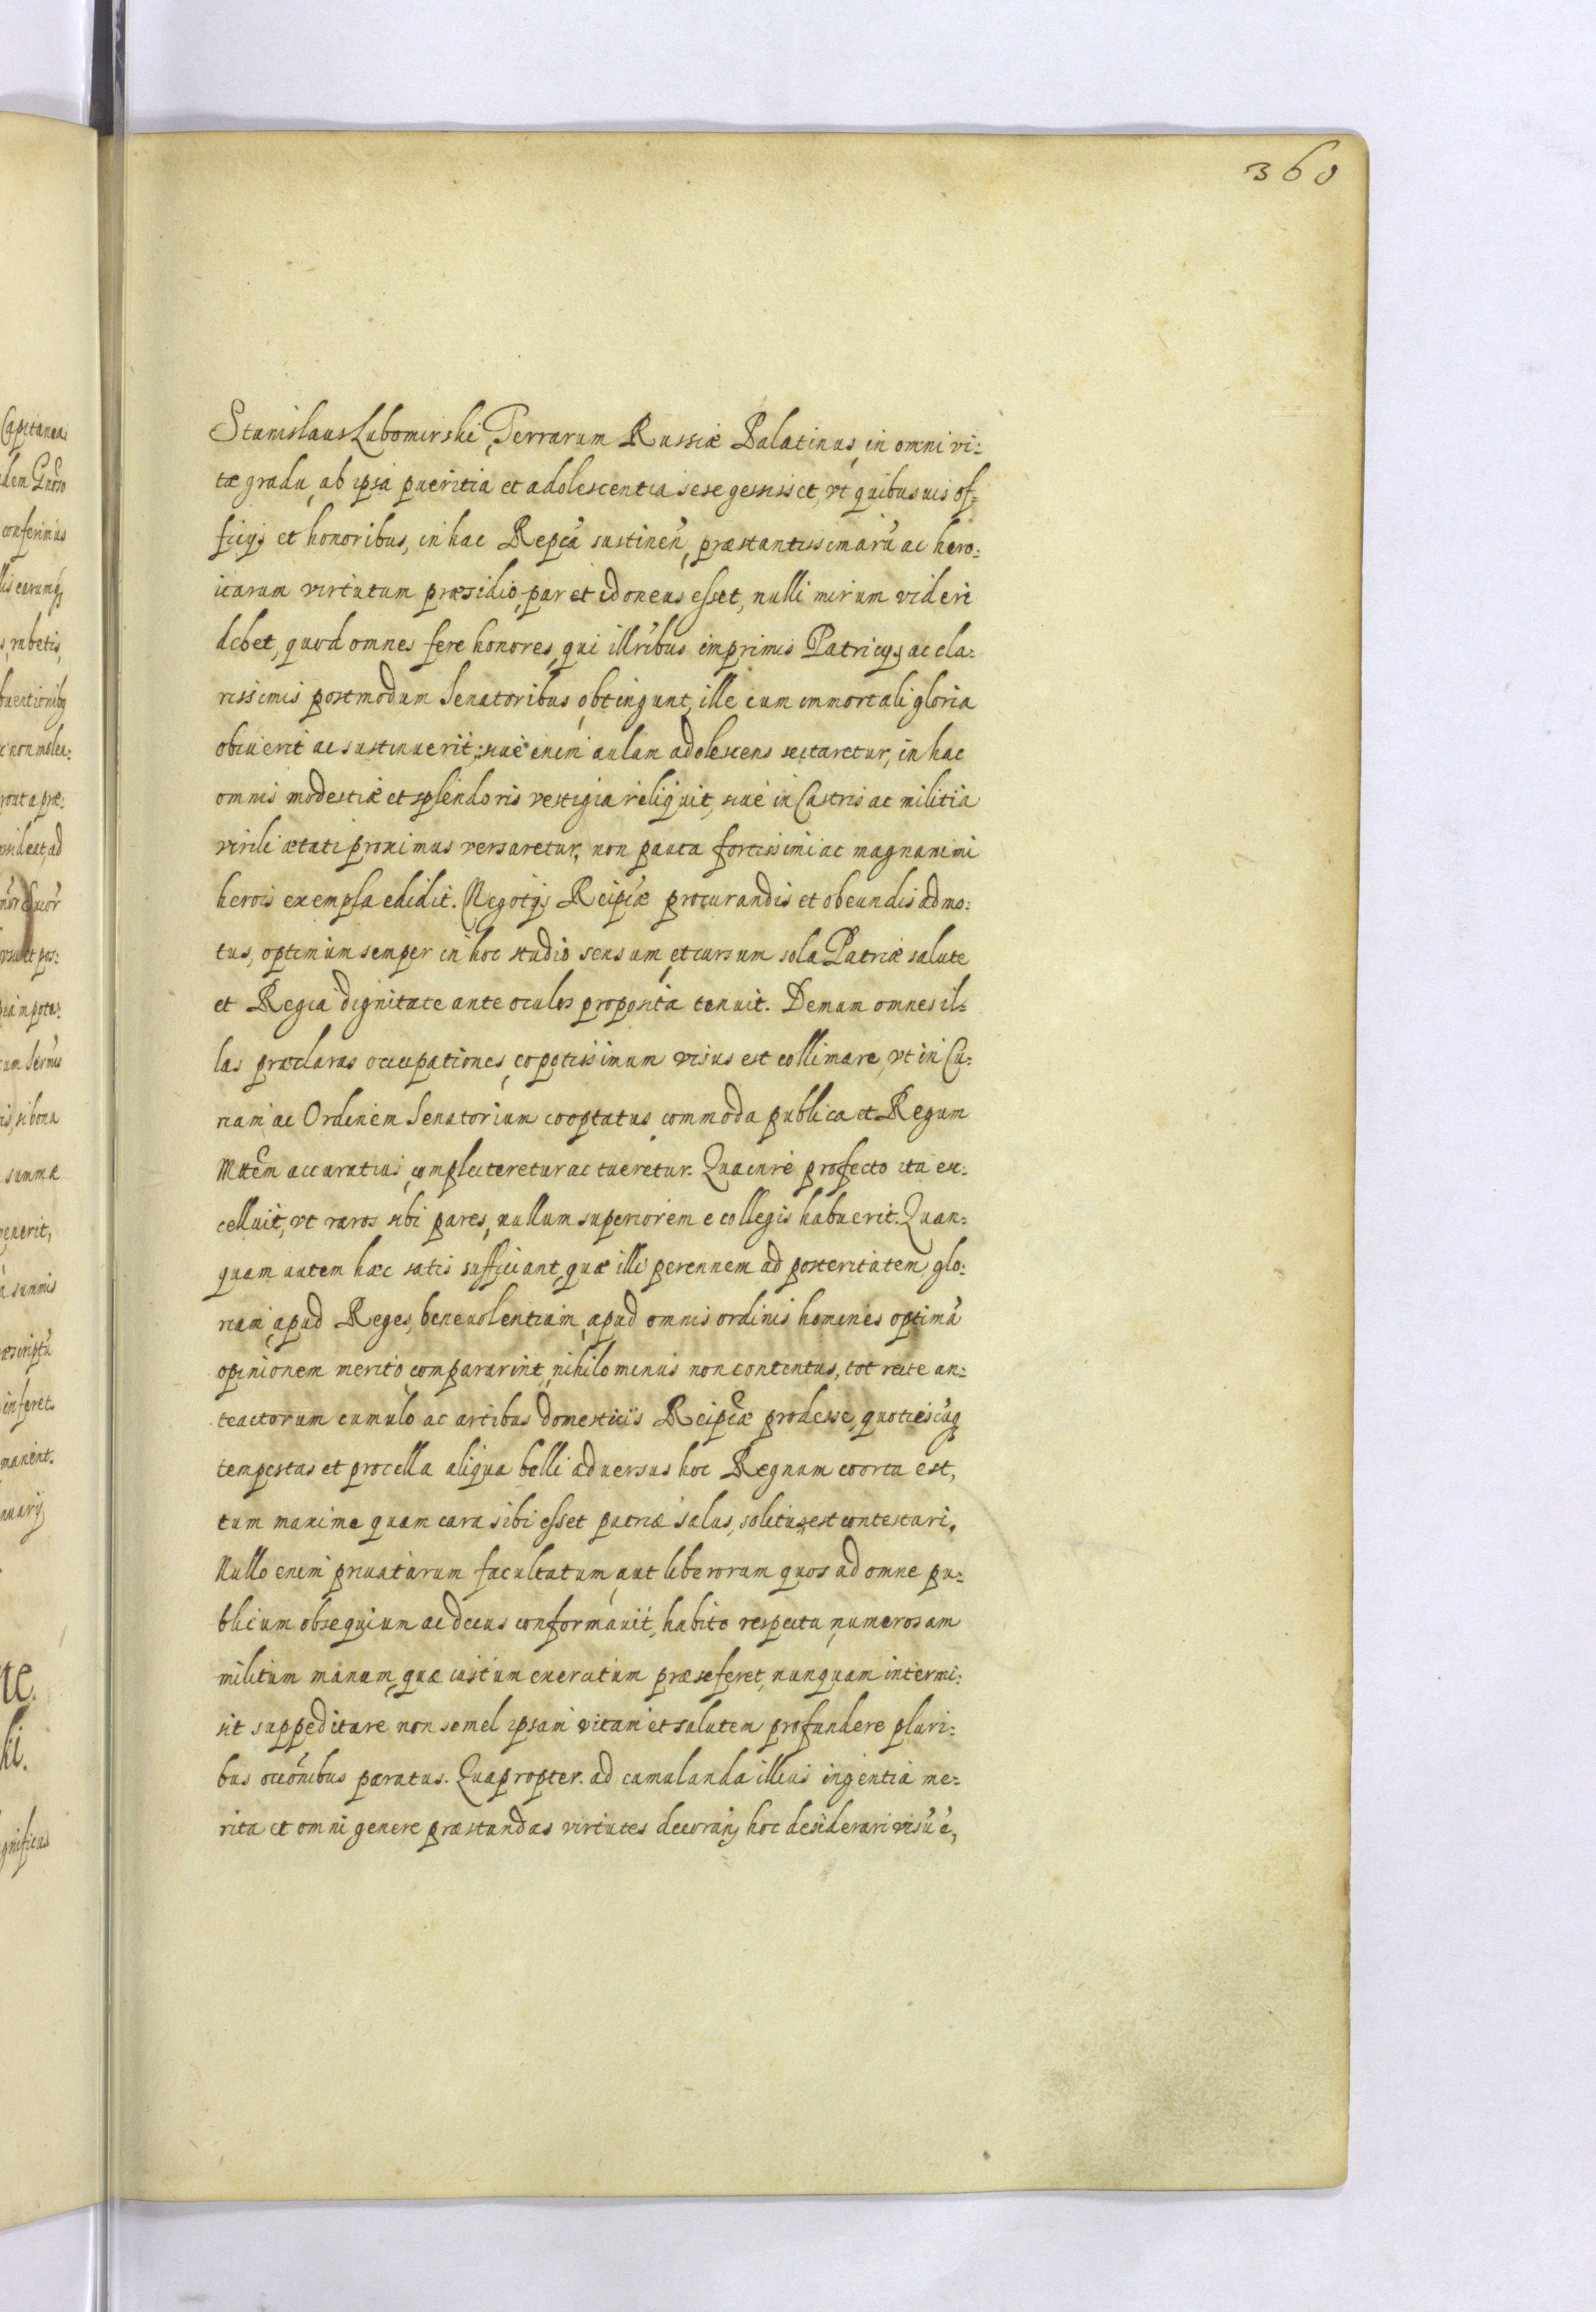 360
Stanislaus Lubomirski, Terrarum Russiæ Palatinus, in omni vi:
tæ gradu, ab ipsa pueritia et adolescentia sese gessisset, vt quibusuis of:
ficijs et honoribus, in hac Repca sustinen, præstantissimarũ ac hero:
icarum virtutum præsidio, par et idoneus esset, nulli mirum videri
debet, quod omnes fere honores, qui illribus imprimis Patricijs ac cla:
rissimis postmodum Senatoribus, obtingunt, ille cum immortali gloria
obiuerit ac sustinuerit; siue enim aulam adolescens sectaretur, in hac
omnis modestiæ et splendoris vestigia reliquit, siue in Castris ac militia
virili ætati proximus versaretur, non pauca fortissimi ac magnanimi
herois exempla edidit. Negotijs Reipcæ procurandis et obeundis admo:
tus, optimum semper in hoc studio sensum, et cursum sola Patriæ salute
et Regia dignitate ante oculos proposita tenuit. Demum omnes il:
las præclaras occupationes, eo potissimum visus est collimare, vt in Cu:
riam ac Ordinem Senatorium cooptatus, commoda publica et Regum
Mttem accuratius, complecteretur ac tueretur. Qua in re profecto ita ex:
celluit, vt raros sibi pares, nullum superiorem e collegis habuerit. Quan:
quam autem hæc satis sufficiant, quæ illi perennem ad posteritatem glo:
riam, apud Reges, beneuolentiam, apud omnis ordinis homines optimã
opinionem merito, compararint, nihilominus non contentus, tot recte an:
teactorum cumulo ac artibus domesticis Reipcæ prodesse, quotiescũq
tempestas et procella aliqua belli aduersus hoc Regnum coorta est,
tum maxime quam cara sibi esset patriæ salus, solitus est contestari.
Nullo enim priuatarum facultatum, aut liberorum quos ad omne pu:
blicum obsequium ac decus conformauit, habito respectu, numerosam
militum manum, quæ iustum exercitum præseferet, nunquam intermi:
sit suppeditare non semel ipsam vitam et salutem profundere pluri:
bus occonibus paratus. Quapropter ad cumulanda illius ingentia me:
rita et omni genere præstandas virtutes decoran, hoc desiderari visũ ẽ,